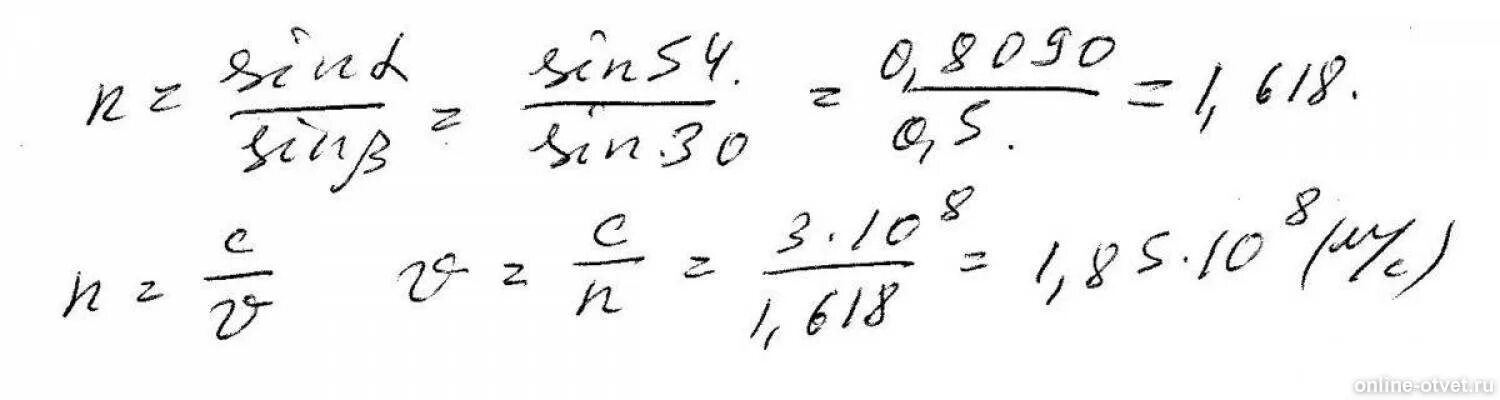 n = sinα/sinβ = sin54./sin.30 = 0,8090/0,5. = 1,618.
n = c/v v = c/n = 3·10⁸/1,618 = 1,85·10⁸ (м/с)
online-otvet.ru